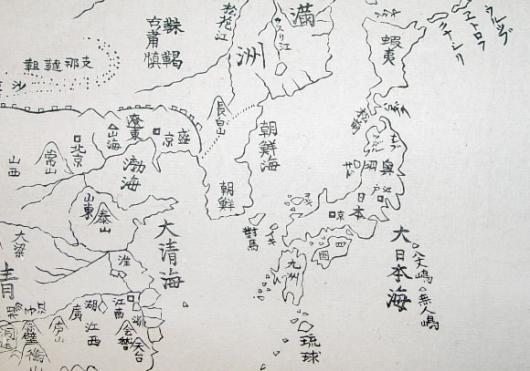 滿
洲
松花江
靺鞨
古肅慎
支那韃靼
蝦夷
ウルップ
エトロフ
クナシリ
松前
長白山
朝鮮海
朝鮮
遼東
盛京
山海
北京
常山
山西
渤海
山東
泰山
大清海
對馬
奥
日本
江戸
京
四國
九州
大日本海
八丈嶋
無人嶋
琉球
大梁
淮
清
湖
江西
江西
浙
会稽
天台
赤壁